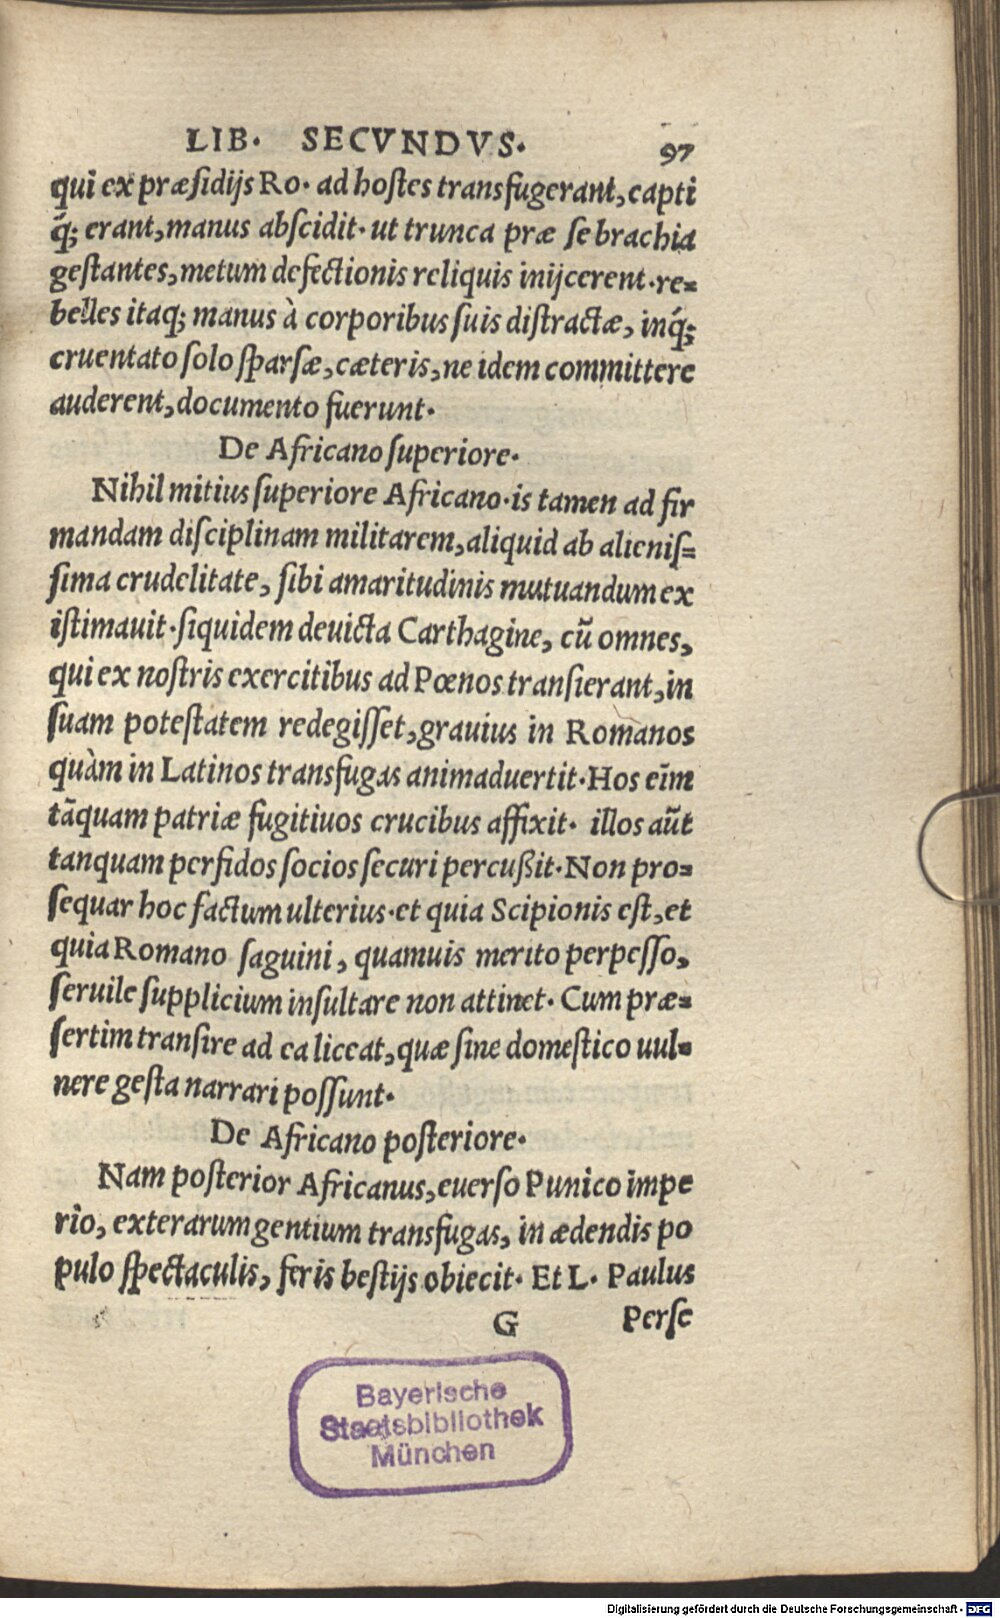 LIB. SECVNDVS. 97
qui ex præſidijs Ro. ad hoſtes transfugerant, capti
q́; erant, manus abſcidit. ut trunca præ ſe brachia
geſtantes, metum defectionis reliquis inijcerent. re=
belles itaq; manus à corporibus ſuis diſtractæ, inq́;
cruentato ſolo ſparſæ, cæteris, ne idem committere
auderent, documento fuerunt.
De Africano ſuperiore.
Nihil mitius ſuperiore Africano. is tamen ad fir
mandam diſciplinam militarem, aliquid ab alieniſ=
ſima crudelitate, ſibi amaritudinis mutuandum ex
iſtimauit. ſiquidem deuicta Carthagine, cũ omnes,
qui ex noſtris exercitibus ad Pœnos tranſierant, in
ſuam poteſtatem redegiſſet, grauius in Romanos
quàm in Latinos transfugas animaduertit. Hos eīm
tãquam patriæ fugitiuos crucibus affixit. illos aũt
tanquam perfidos ſocios ſecuri percußit. Non pro=
ſequar hoc factum ulterius. et quia Scipionis eſt, et
quia Romano ſaguini, quamuis merito perpeſſo,
ſeruile ſupplicium inſultare non attinet. Cum præ=
ſertim tranſire ad ea liceat, quæ ſine domeſtico uul=
nere geſta narrari poſſunt.
De Africano poſteriore.
Nam poſterior Africanus, euerſo Punico impe
rio, exterarum gentium transfugas, in ædendis po
pulo ſpectaculis, feris beſtijs obiecit. Et L. Paulus
G Perſe
Bayerische
Staatsbibliothek
München
Digitalisierung gefördert durch die Deutsche Forschungsgemeinschaft - DFG